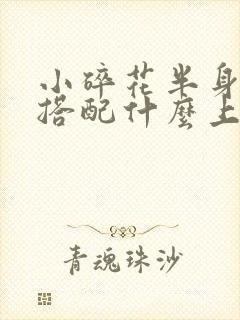 小碎花半身
搭配什麼上
青魂珠沙